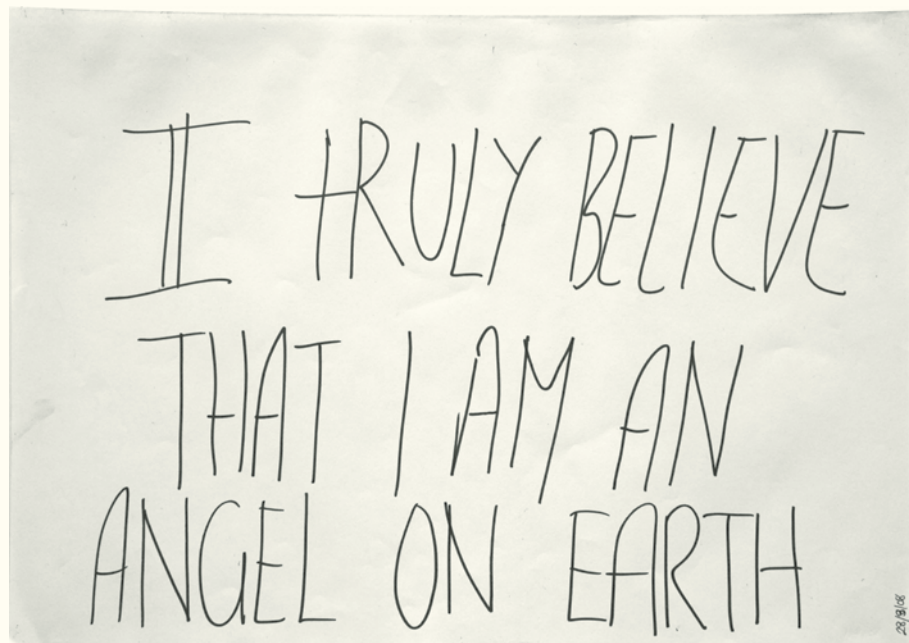 I TRULY BELIEVE
THAT I AM AN
ANGEL ON EARTH
28/8/08